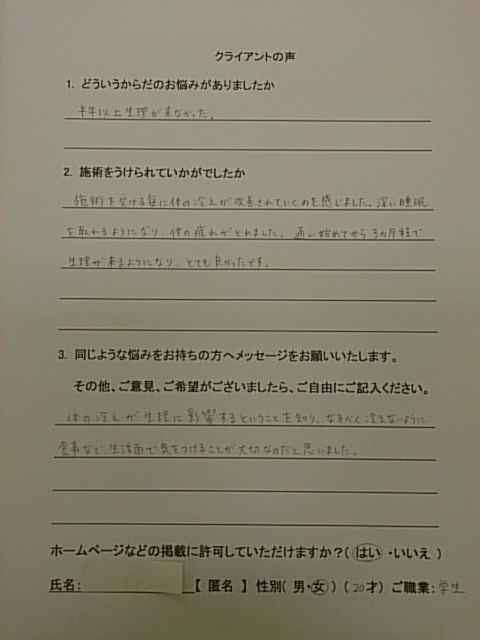 クライアントの声
1. どういうからだのお悩みがありましたか
半年以上生理が来なかった。
2. 施術をうけられていかがでしたか
施術を受ける毎に体の冷えが改善されていくのを感じました。深い睡眠
を取れるようになり、体の疲れがとれました。通い始めてから3ヵ月程で
生理が来るようになり、とても良かったです。
3. 同じような悩みをお持ちの方へメッセージをお願いいたします。
その他、ご意見、ご希望がございましたら、ご自由にご記入ください。
体の冷えが生理に影響するということを知り、なるべく冷えないように
食事など、生活面で気をつけることが大切なのだと思いました。
ホームページなどの掲載に許可していただけますか？( はい ・いいえ )
氏名: 【 匿名 】 性別( 男・女 ) ( 20才 ) ご職業: 学生